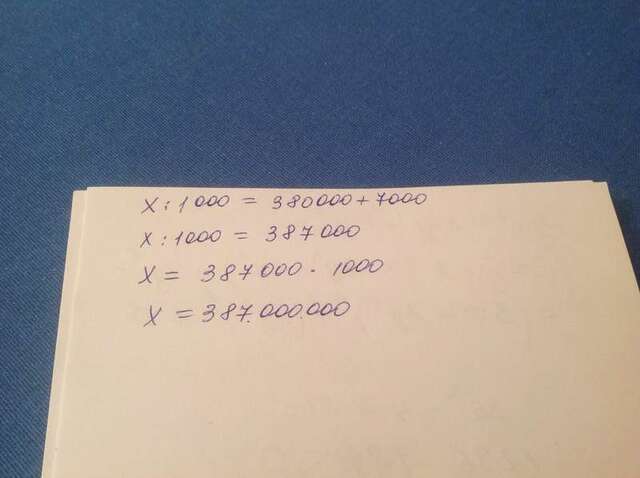 x : 1000 = 380000 + 7000
x : 1000 = 387000
x = 387000 · 1000
x = 387.000.000